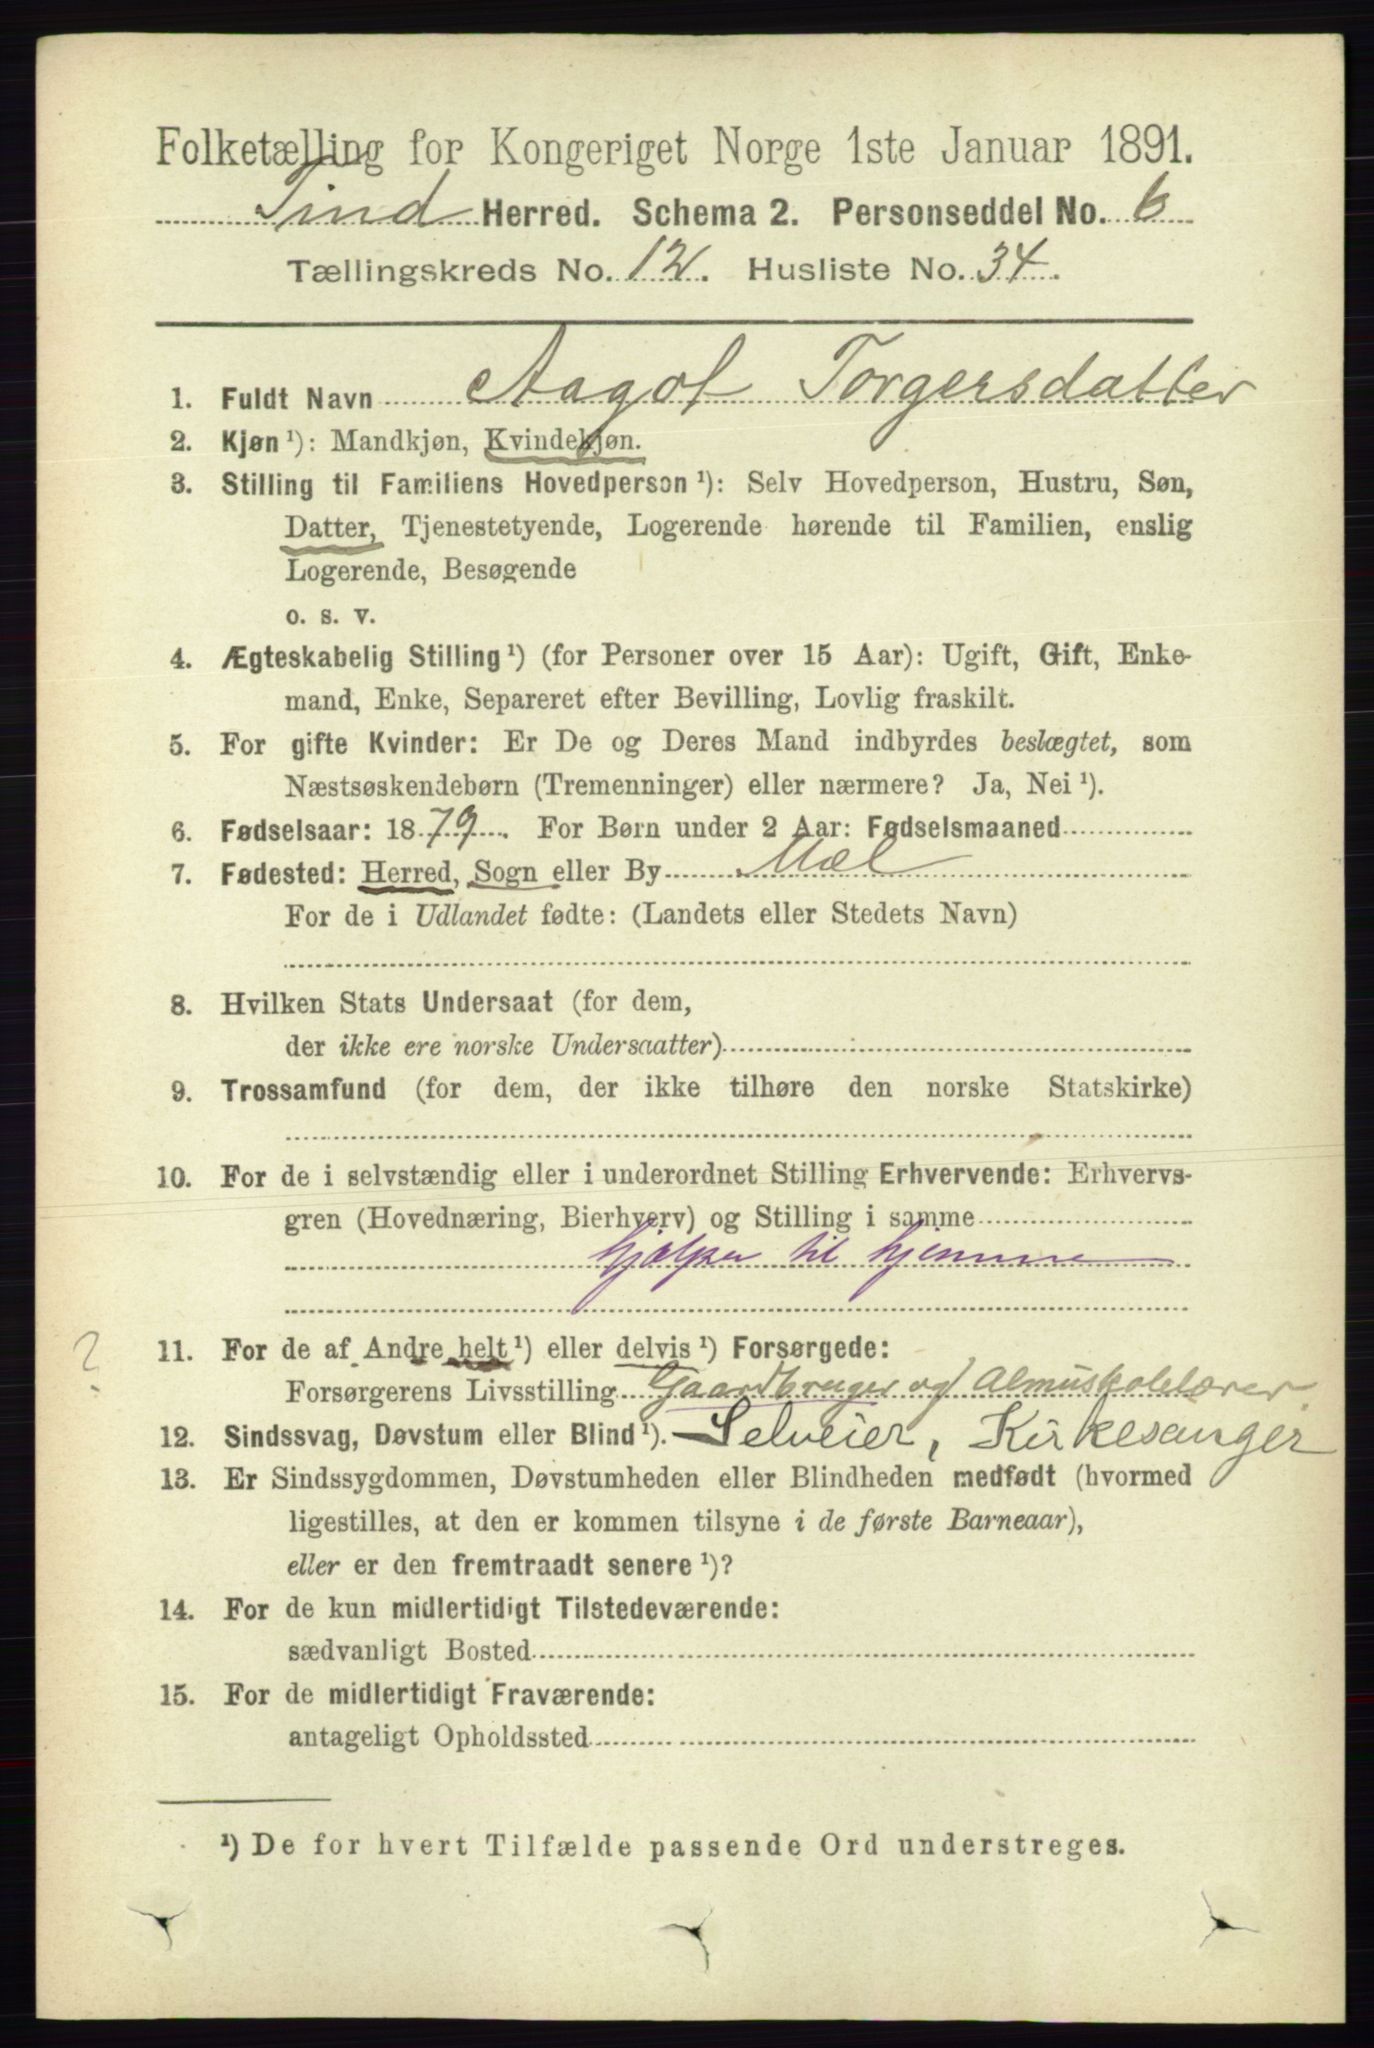 Folketælling for Kongeriget Norge 1ste Januar 1891.
Tind Herred. Schema 2. Personseddel No. 6
Tællingskreds No. 12. Husliste No. 34.
1. Fuldt Navn Aagot Torgersdatter
2. Kjøn ¹): Mandkjøn, Kvindekjøn.
3. Stilling til Familiens Hovedperson ¹): Selv Hovedperson, Hustru, Søn,
Datter, Tjenestetyende, Logerende hørende til Familien, enslig
Logerende, Besøgende
o. s. v.
4. Ægteskabelig Stilling ¹) (for Personer over 15 Aar): Ugift, Gift, Enke-
mand, Enke, Separeret efter Bevilling, Lovlig fraskilt.
5. For gifte Kvinder: Er De og Deres Mand indbyrdes beslægtet, som
Næstsøskendebørn (Tremenninger) eller nærmere? Ja, Nei ¹).
6. Fødselsaar: 1879. For Børn under 2 Aar: Fødselsmaaned
7. Fødested: Herred, Sogn eller By Mæl
For de i Udlandet fødte: (Landets eller Stedets Navn)
8. Hvilken Stats Undersaat (for dem,
der ikke ere norske Undersaatter)
9. Trossamfund (for dem, der ikke tilhøre den norske Statskirke)
10. For de i selvstændig eller i underordnet Stilling Erhvervende: Erhvervs-
gren (Hovednæring, Bierhverv) og Stilling i samme
hjælper til hjemme
? 11. For de af Andre helt ¹) eller delvis ¹) Forsørgede:
Forsørgerens Livsstilling Gaardbruger og Almuskolelærer
12. Sindssvag, Døvstum eller Blind ¹). Selveier, Kirkesanger
13. Er Sindssygdommen, Døvstumheden eller Blindheden medfødt (hvormed
ligestilles, at den er kommen tilsyne i de første Barneaar),
eller er den fremtraadt senere ¹)?
14. For de kun midlertidigt Tilstedeværende:
sædvanligt Bosted
15. For de midlertidigt Fraværende:
antageligt Opholdssted
¹) De for hvert Tilfælde passende Ord understreges.